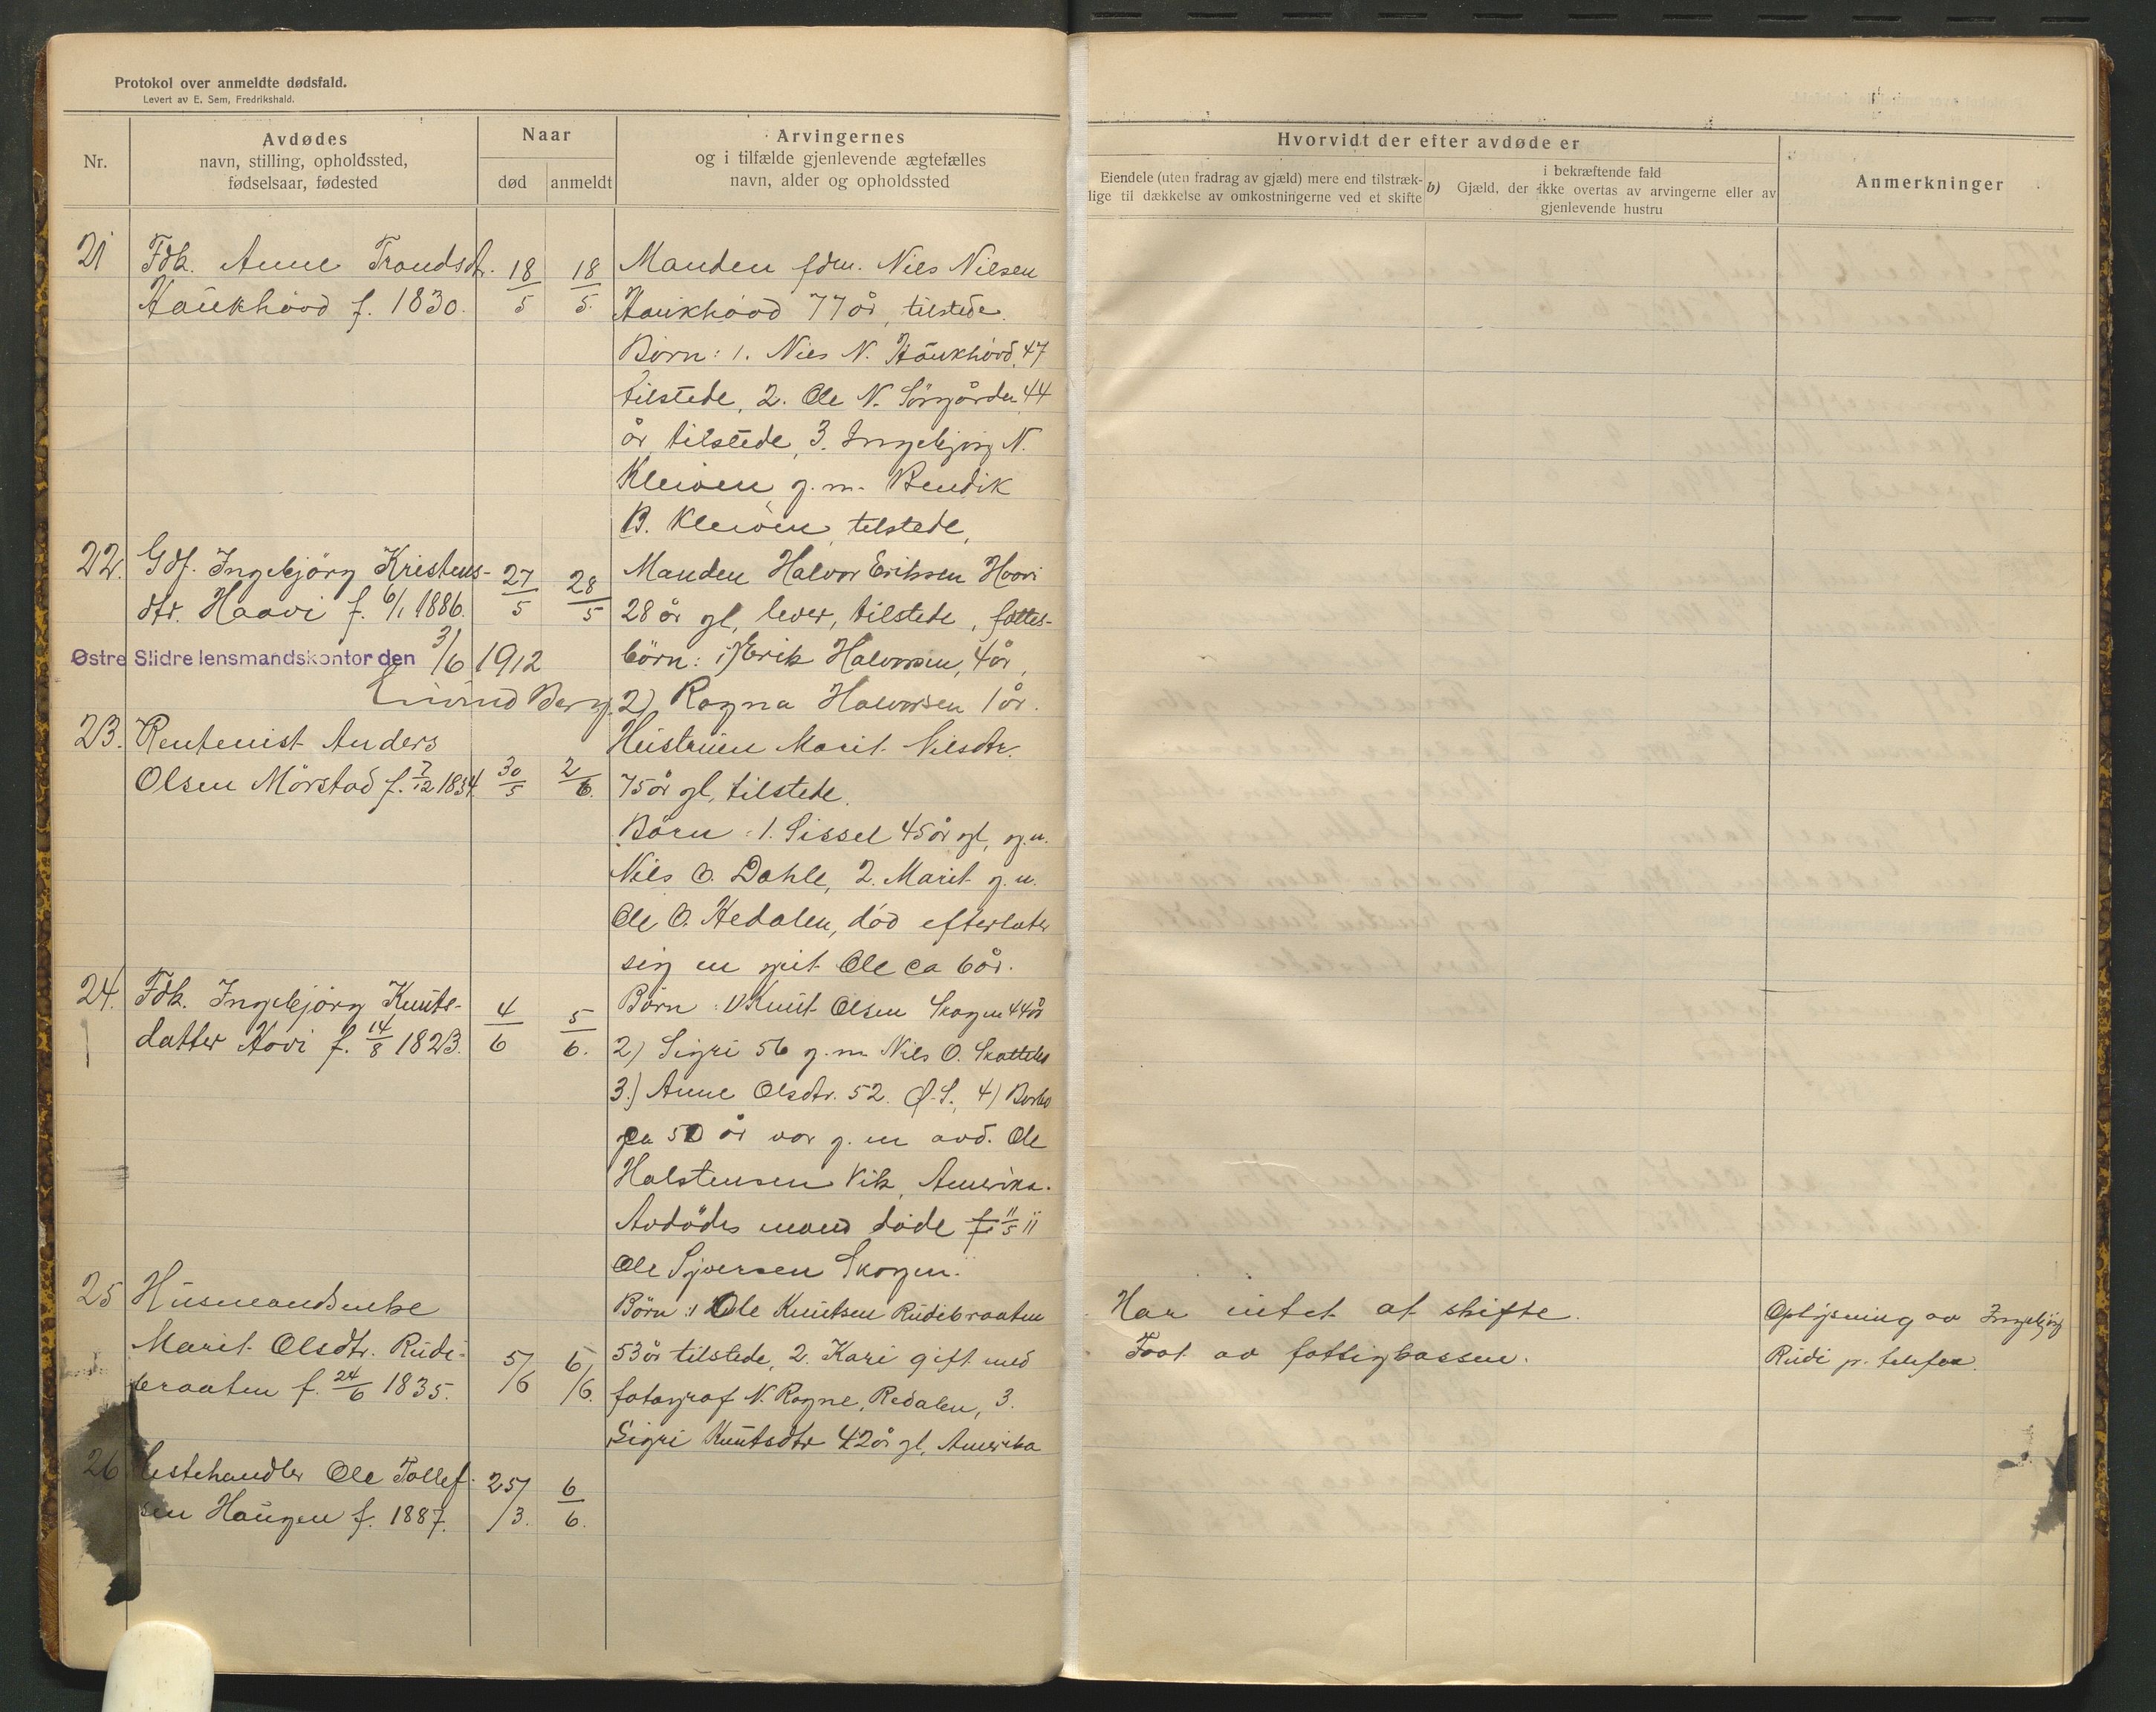 Protokol over anmeldte dødsfald.
Levert av E. Sem, Fredrikshald.
Nr.
Avdødes
navn, stilling, opholdssted,
fødselsaar, fødested
Naar
død anmeldt
Arvingernes
og i tilfælde gjenlevende ægtefælles
navn, alder og opholdssted
Hvorvidt der efter avdøde er
Eiendele (uten fradrag av gjæld) mere end tilstræk-
lige til dækkelse av omkostningerne ved et skifte
i bekræftende fald
b) Gjæld, der ikke overtas av arvingerne eller av
gjenlevende hustru
Anmerkninger
21 Fdk. Anne Trondsdtr.
Haukhovd f. 1830.
18/5 18/5.
Manden fdm. Nils Nilsen
Haukhovd 77 år, tilstede.
Børn: 1. Nils N. Haukhovd, 47
tilstede, 2. Ole N. Sörgården 44
år tilstede, 3. Ingebjörg N.
Kleiven g. m. Bendik
B. Kleiven, tilstede,
22. Gdf. Ingebjörg Kristens-
dtr. Haavi f. 6/1 1886.
27/5 28/5
Manden Halvor Eriksen Hovi
28 år gl, lever, tilstede, fælles-
børn: 1) Erik Halvorsen, 4 år,
2) Ragna Halvorsen 1 år.
Østre Slidre lensmandskontor den 3/6 1912
Eivind Berg.
23. Rentenist Anders
Olsen Mörstad f. 7/12 1834.
30/5 2/6.
Hustruen Marit Nilsdtr.
75 år gl, tilstede.
Börn: 1. Sissel 45 år gl, g. m.
Nils O. Dahle, 2. Marit g. m.
Ole O. Hedalen, död efterlater
sig en gut Ole ca 6 år.
24. Fdk. Ingebjörg Knuts-
datter Hovi f. 14/8 1823.
4/6 5/6.
Börn: 1) Knut Olsen Skogen 44 år
2) Sigri 56 g. m. Nils O. Skattebo
3.) Anne Olsdtr. 52. Ø. S., 4) Barbo
ca 50 år var g. m avd. Ole
Halstensen Vik, Amerika.
Avdödes mand döde 11/5 11
Ole Syversen Skogen.
25 Husmandsenke
Marit Olsdtr. Rudi-
braaten f. 24/6 1835.
5/6 6/6.
Börn: 1 Ole Knutsen Rudibraaten
53 år tilstede, 2. Kari gift med
fotograf N. Rogne, Redalen, 3.
Sigri Knutsdtr 42 år gl, Amerika
Har intet at skifte.
Faat av fattigkassen.
Oplysning av Ingebjörg
Rudi p. telefon.
26 Hestehandler Ole Tollef-
sen Haugen f. 1887.
25/3. 6/6.